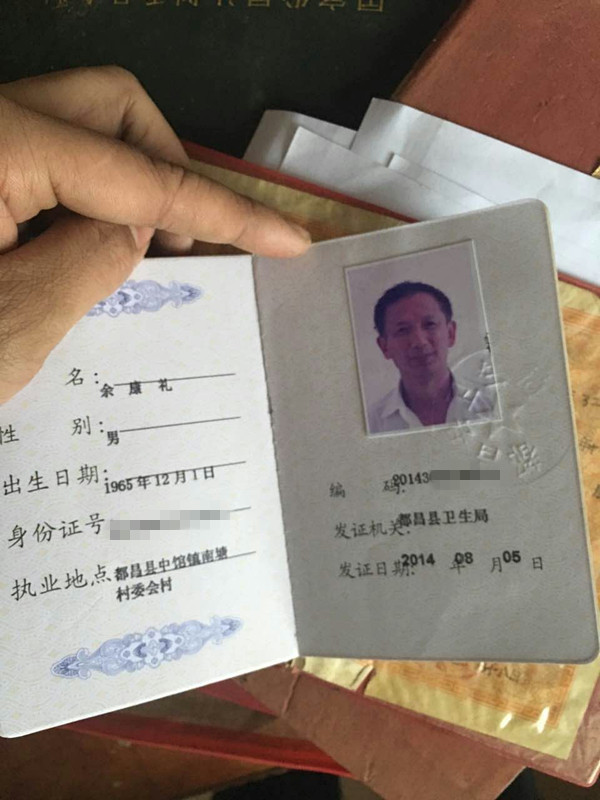 名：余康礼
性别：男
出生日期：1965年12月1日
身份证号
执业地点 都昌县中馆镇南塘
村委会村
编码：20143
发证机关：都昌县卫生局
发证日期：2014年08月05日